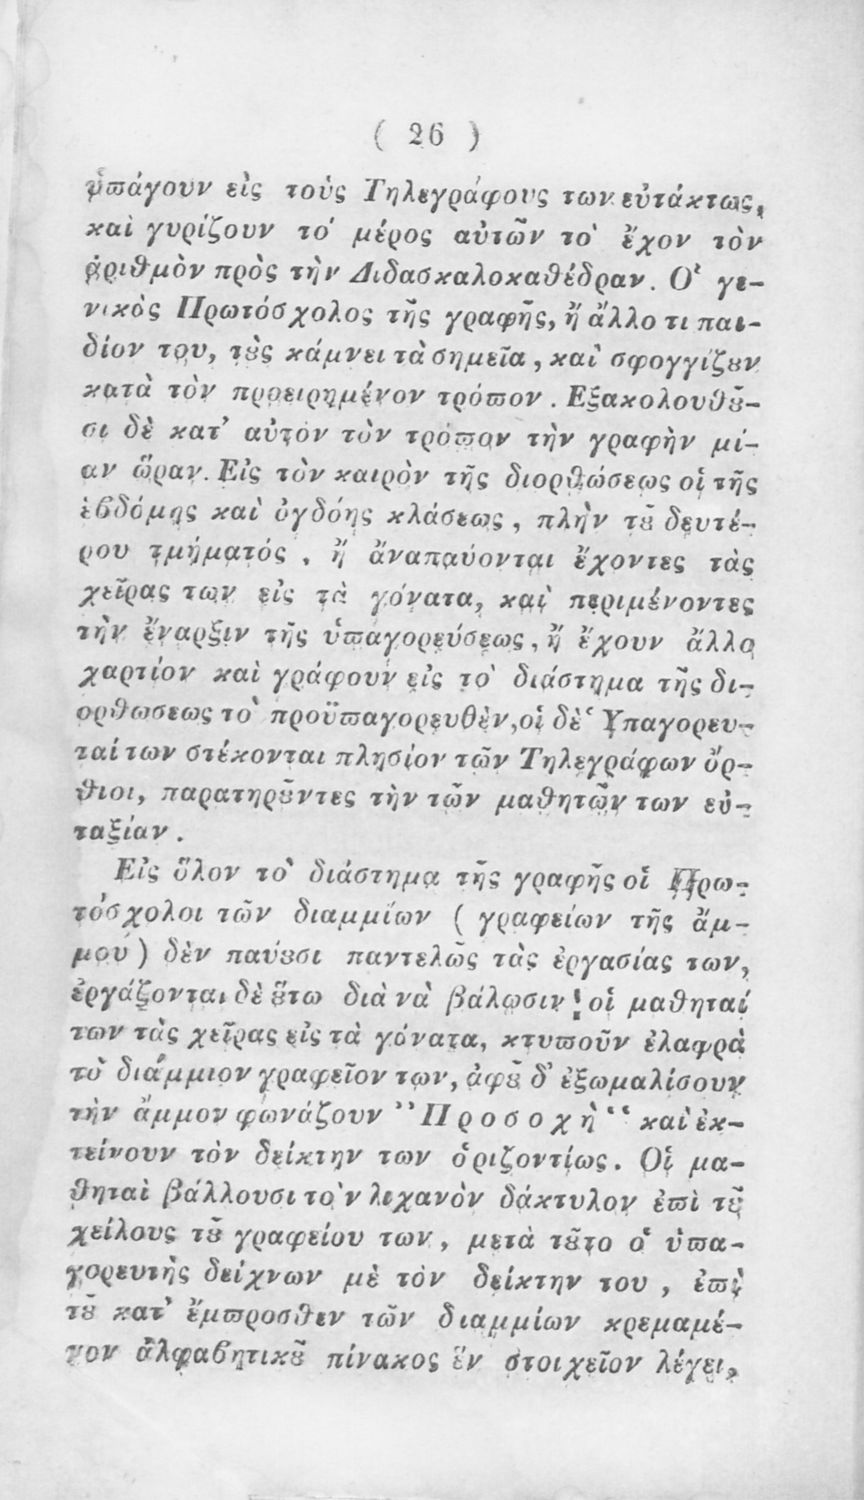 ( 26 )
ὑπάγουν εἰς τοὺς Τηλεγράφους των εὐτάκτως,
καὶ γυρίζουν τὸ μέρος αὐτῶν τὸ ἔχον τὸν
ἀριθμὸν πρὸς τὴν Διδασκαλοκαθέδραν. Ὁ γε-
νικὸς Πρωτόσχολος τῆς γραφῆς, ἢ ἄλλο τι παι-
δίον του, τȣ̀ς κάμνει τὰ σημεῖα, καὶ σφογγίζȣν
κατὰ τὸν προειρημένον τρόπον. Εξακολουθȣ͂-
σι δὲ κατ' αὐτὸν τὸν τρόπον τὴν γραφὴν μί-
αν ὥραν. Εἰς τὸν καιρὸν τῆς διορθώσεως οἱ τῆς
ἑβδόμης καὶ ὀγδόης κλάσεως, πλὴν τȣ͂ δευτέ-
ρου τμήματός, ἢ ἀναπαύονται ἔχοντες τὰς
χεῖρας των εἰς τὰ γόνατα, καὶ περιμένοντες
τὴν ἔναρξιν τῆς ὑπαγορεύσεως, ἢ ἔχουν ἄλλο
χαρτίον καὶ γράφουν εἰς τὸ διάστημα τῆς δι-
ορθωσεως τὸ προϋπαγορευθὲν, οἱ δὲ Ὑπαγορευ-
ταί των στέκονται πλησίον τῶν Τηλεγράφων ὄρ-
θιοι, παρατηρȣ͂ντες τὴν τῶν μαθητῶν των εὐ-
ταξίαν.
Εἰς ὅλον τὸ διάστημα τῆς γραφῆς οἱ Πρω-
τόσχολοι τῶν διαμμίων ( γραφείων τῆς ἄμ-
μου ) δὲν παύȣσι παντελῶς τὰς ἐργασίας των,
ἐργάζονται δὲ ȣ̔́τω διὰ νὰ βάλωσιν! οἱ μαθηταί
των τὰς χεῖρας εἰς τὰ γόνατα, κτυποῦν ἐλαφρὰ
τὸ διάμμιον γραφεῖον των, ἀφȣ͂ δ' ἐξωμαλίσουν
τὴν ἄμμον φωνάζουν ”Προσοχὴ“ καὶ ἐκ-
τείνουν τὸν δείκτην των ὁριζοντίως. Οἱ μα-
θηταὶ βάλλουσι τὸν λιχανὸν δάκτυλον ἐπὶ τȣ͂
χείλους τȣ͂ γραφείου των, μετὰ τȣ͂το ὁ ὑπα-
γορευτὴς δείχνων μὲ τὸν δείκτην του, ἐπὶ
τȣ͂ κατ' ἔμπροσθεν τῶν διαμμίων κρεμαμέ-
νον ἀλφαβητικȣ͂ πίνακος ἓν στοιχεῖον λέγει,